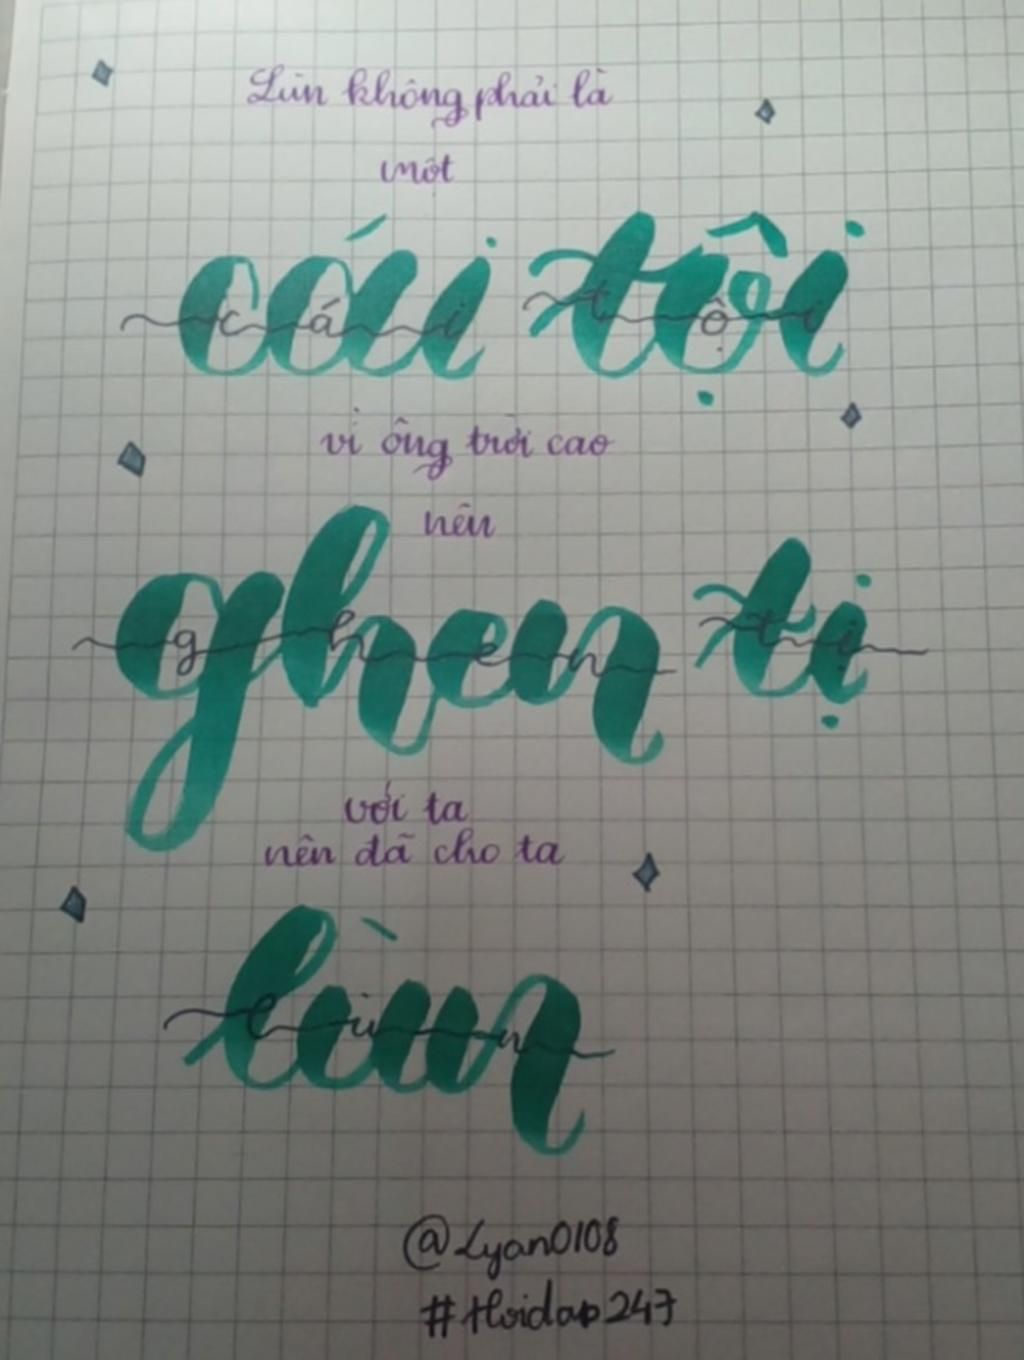 Lùn không phải là
một
cái tội
vì ông trời cao
nên
ghen tị
với ta
nên đã cho ta
lùn
@Lyan0108
#Hoidap247